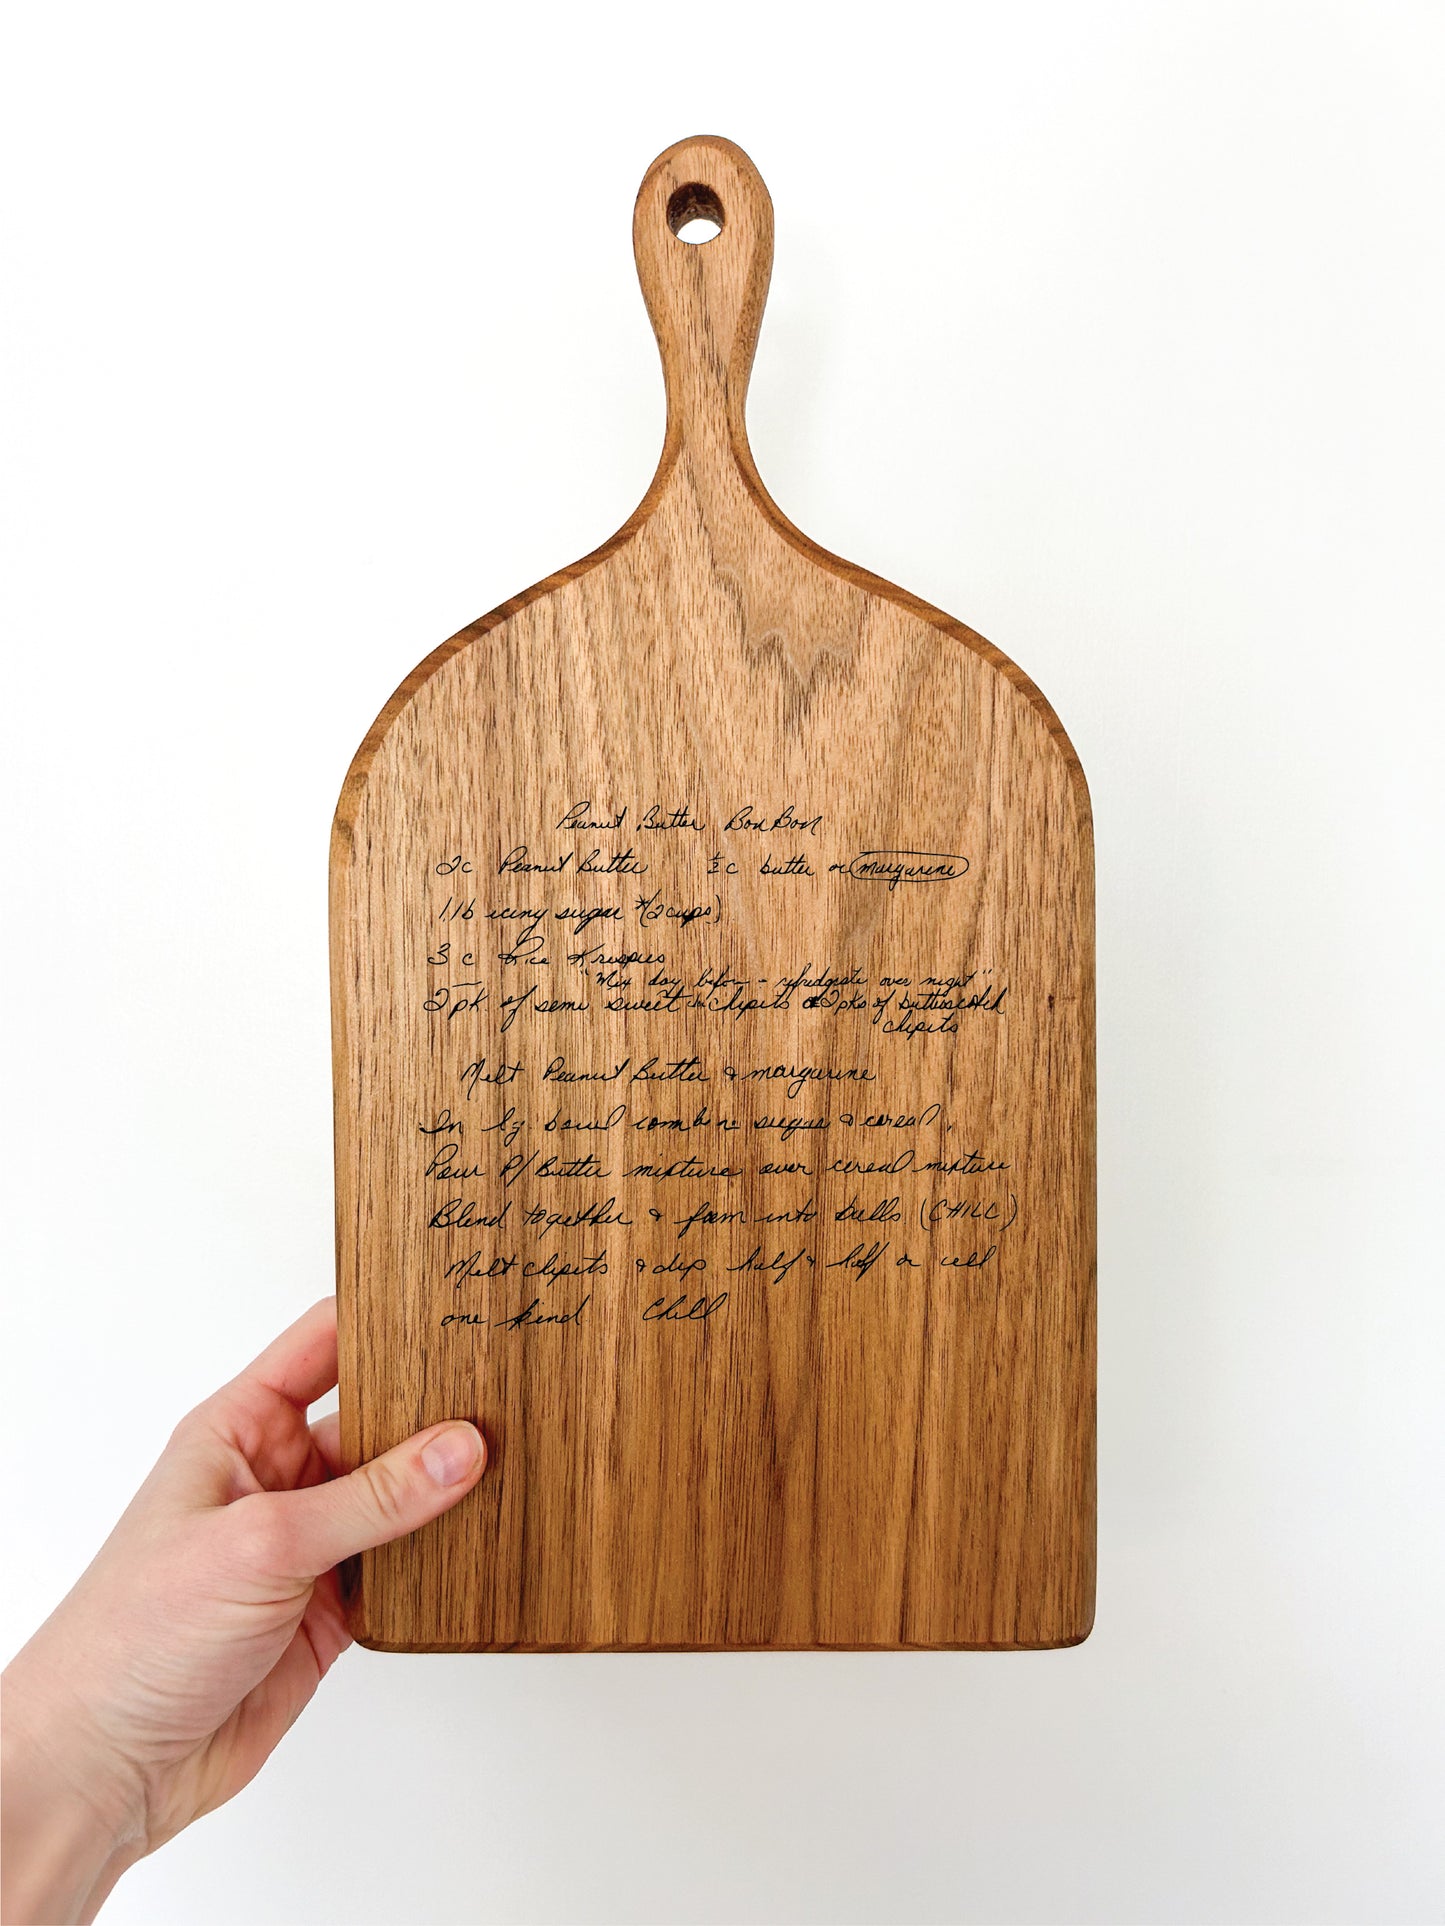 Peanut Butter Bon Bon
2c Peanut Butter ½c butter or margarine
1 lb icing sugar *(2 cups)
3 c Rice Krispies
"Mix day before - refridgrate over night"
2 pk of semi sweet chipits or 2 pks of butterscotch
chipits
Melt Peanut Butter & margarine
In lg bowl combine sugar & cereal.
Pour P/Butter mixture over cereal mixture
Blend together & form into balls (CHILL)
Melt chipits & dip half & half or all
one kind Chill